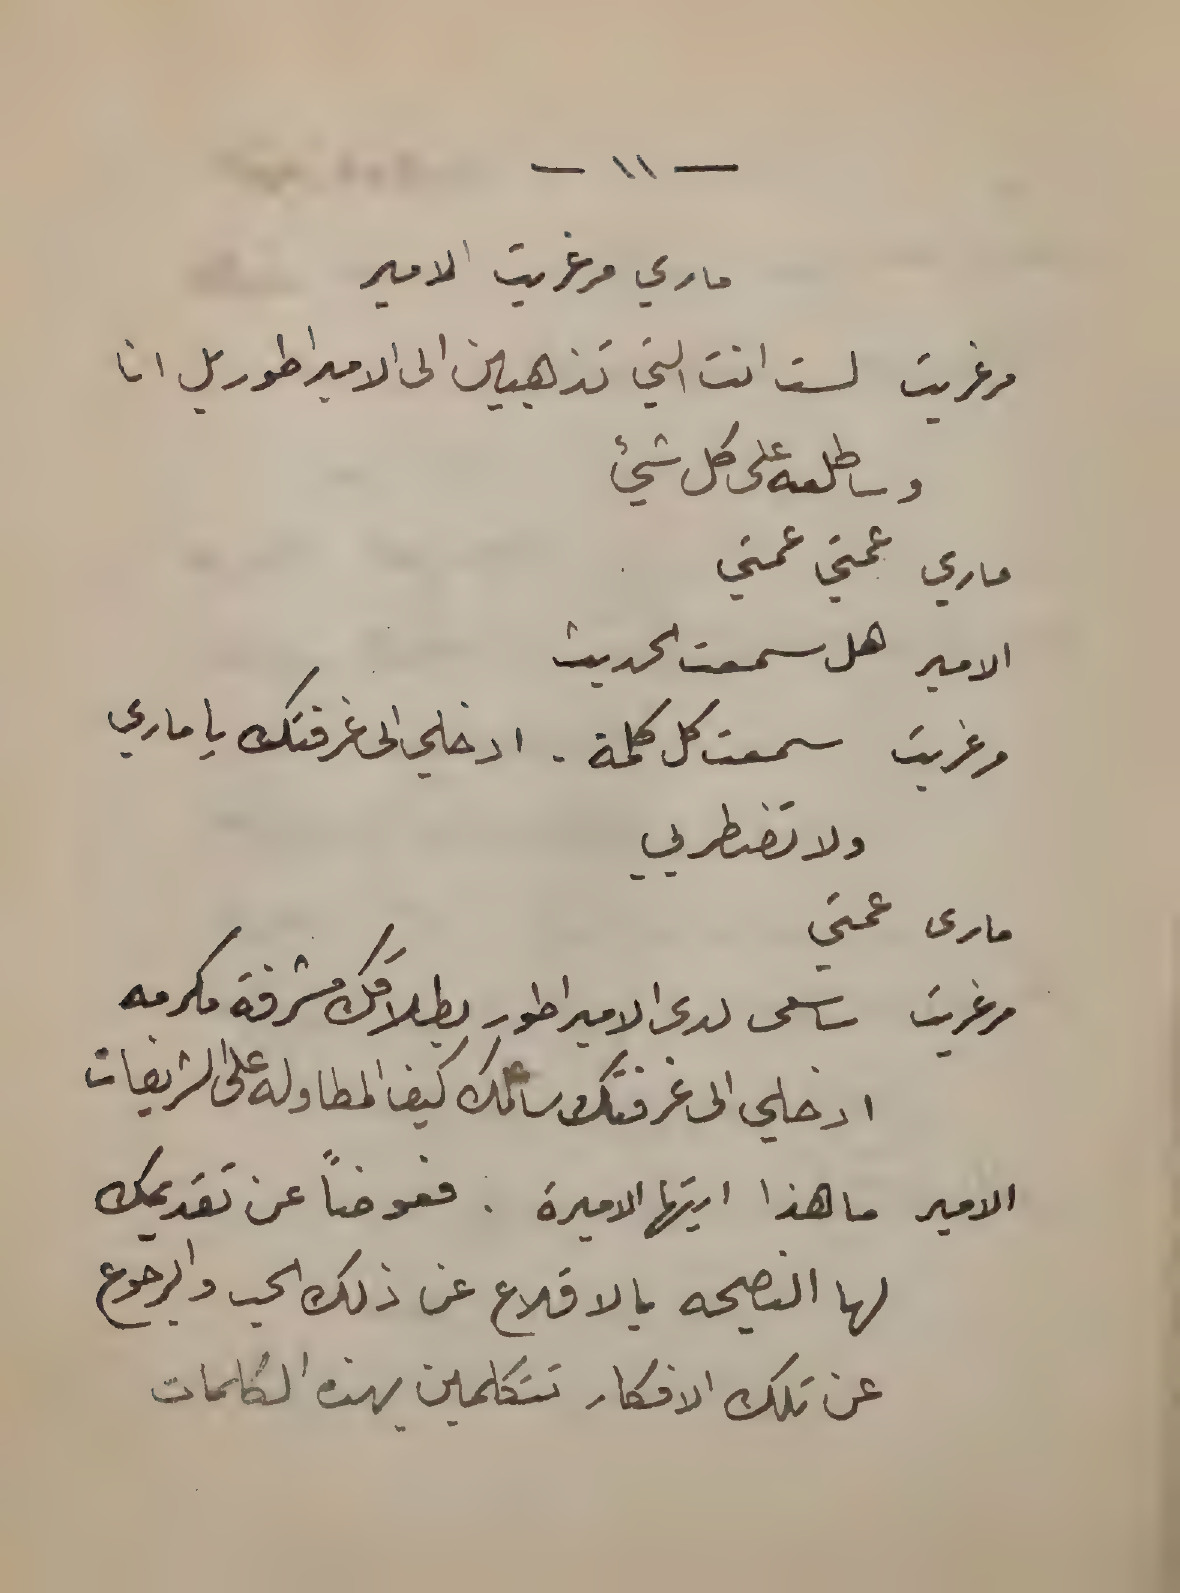 — ١١ —
ماري مرغريت الامير
مرغريت لست انت التي تذهبين الى الامبراطور بل انا
وساطلعه على كل شيئ
ماري عمتي عمتي
الامير هل سمعت الحديث
مرغريت سمعت كل كلمة . ادخلي الى غرفتك يا ماري
ولا تضطربي
مارى عمتي
مرغريت ساسعى لدى الامبراطور بطلاقك مشرفة مكرمه
ادخلي الى غرفتك وساعلمك كيف المطاوله على الشريفات
الامير ما هذا ايتها الاميرة . فعوضاً عن تقديمك
لها النصيحه بالاقلاع عن ذلك الحب والرجوع
عن تلك الافكار تتكلمين بهذه الكلمات